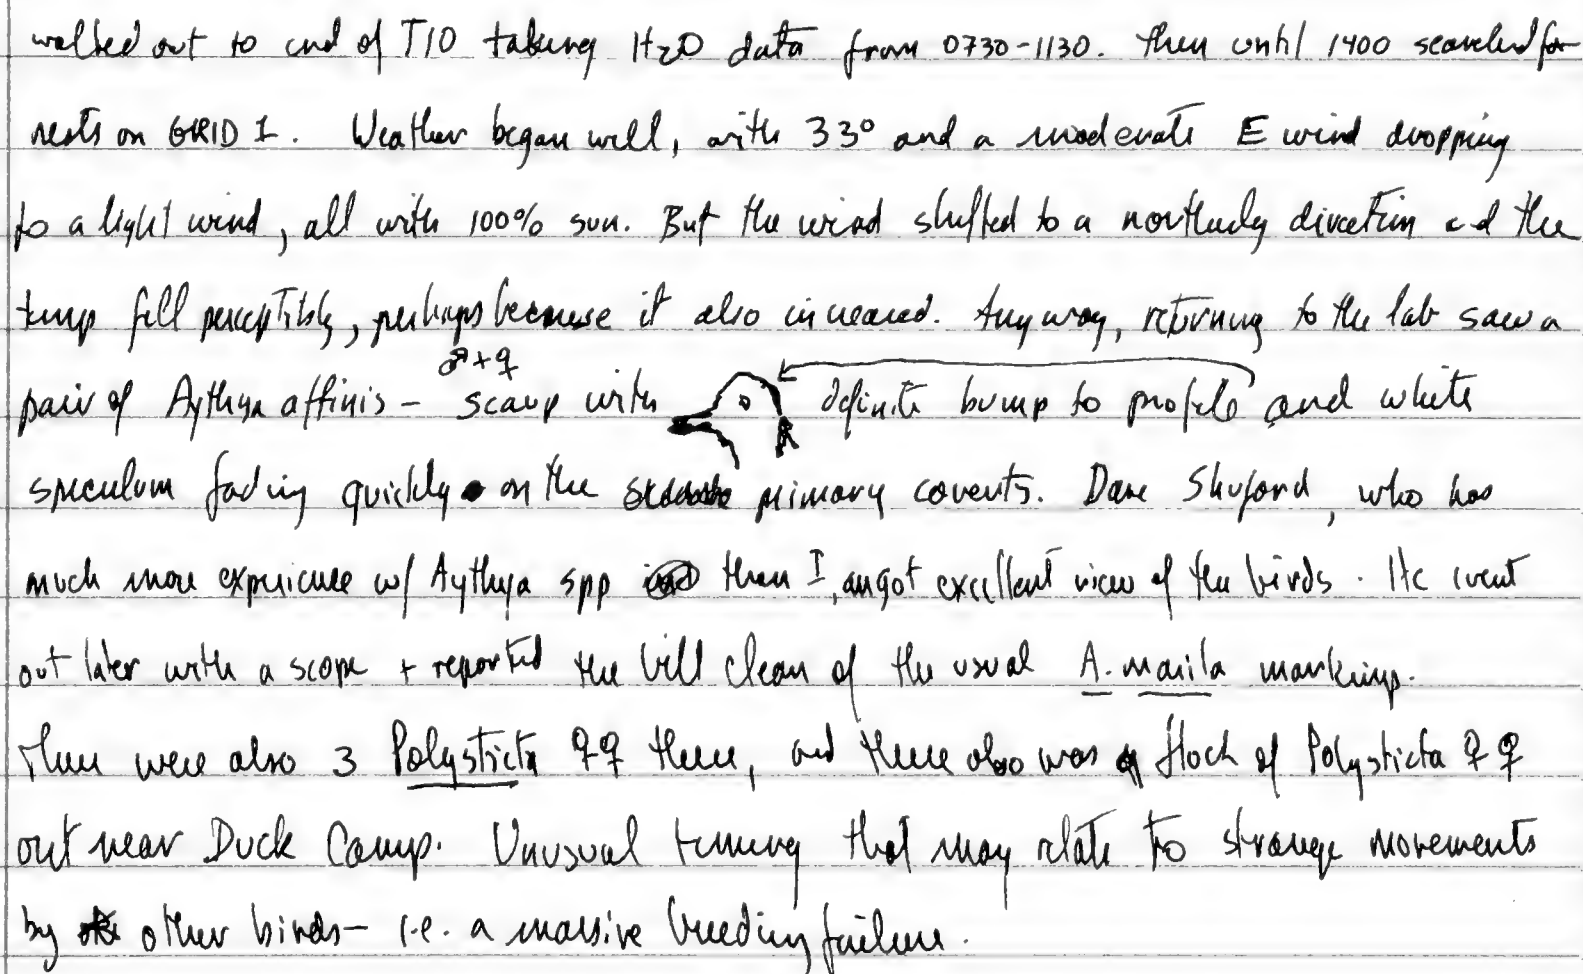 walked out to end of T10 taking H2O data from 0730-1130. Then until 1400 searched for
nests on GRID 1. Weather began well, with 33° and a moderate E wind dropping
to a light wind, all with 100% sun. But the wind shifted to a northerly direction and the
temp fell perceptibly, perhaps because it also increased. Anyway, returning to the lab saw a
♂+♀
pair of Aythya affinis – scaup with definite bump to profile and white
speculum fading quickly on the primary coverts. Dave Shuford, who has
much more experience w/ Aythya spp than I, got excellent view of the birds. He went
out later with a scope + reported the bill clean of the usual A. marila markings.
There were also 3 Polysticta ♀♀ there, and there also was a flock of Polysticta ♀♀
out near Duck Camp. Unusual timing that may relate to strange movements
by other birds – i.e. a massive breeding failure.